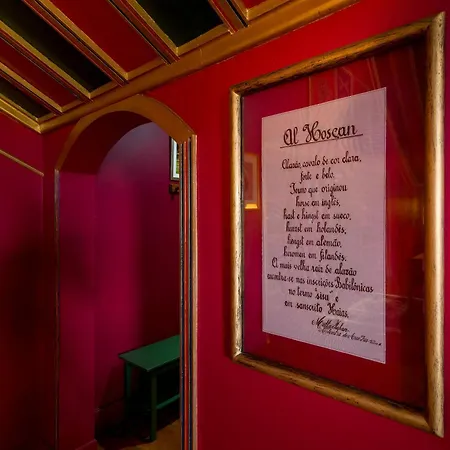 Al Hosçan
Alazão, cavalo de cor clara,
forte e belo.
Termo que originou
horse em inglês,
hast e hingst em sueco,
hunnst em holandês,
hengst em alemão,
hevonen em filandês.
A mais velha raiz de alazão
encontra-se nas inscrições Babilónicas
no termo "sisu" e
em sanscrito Haias.